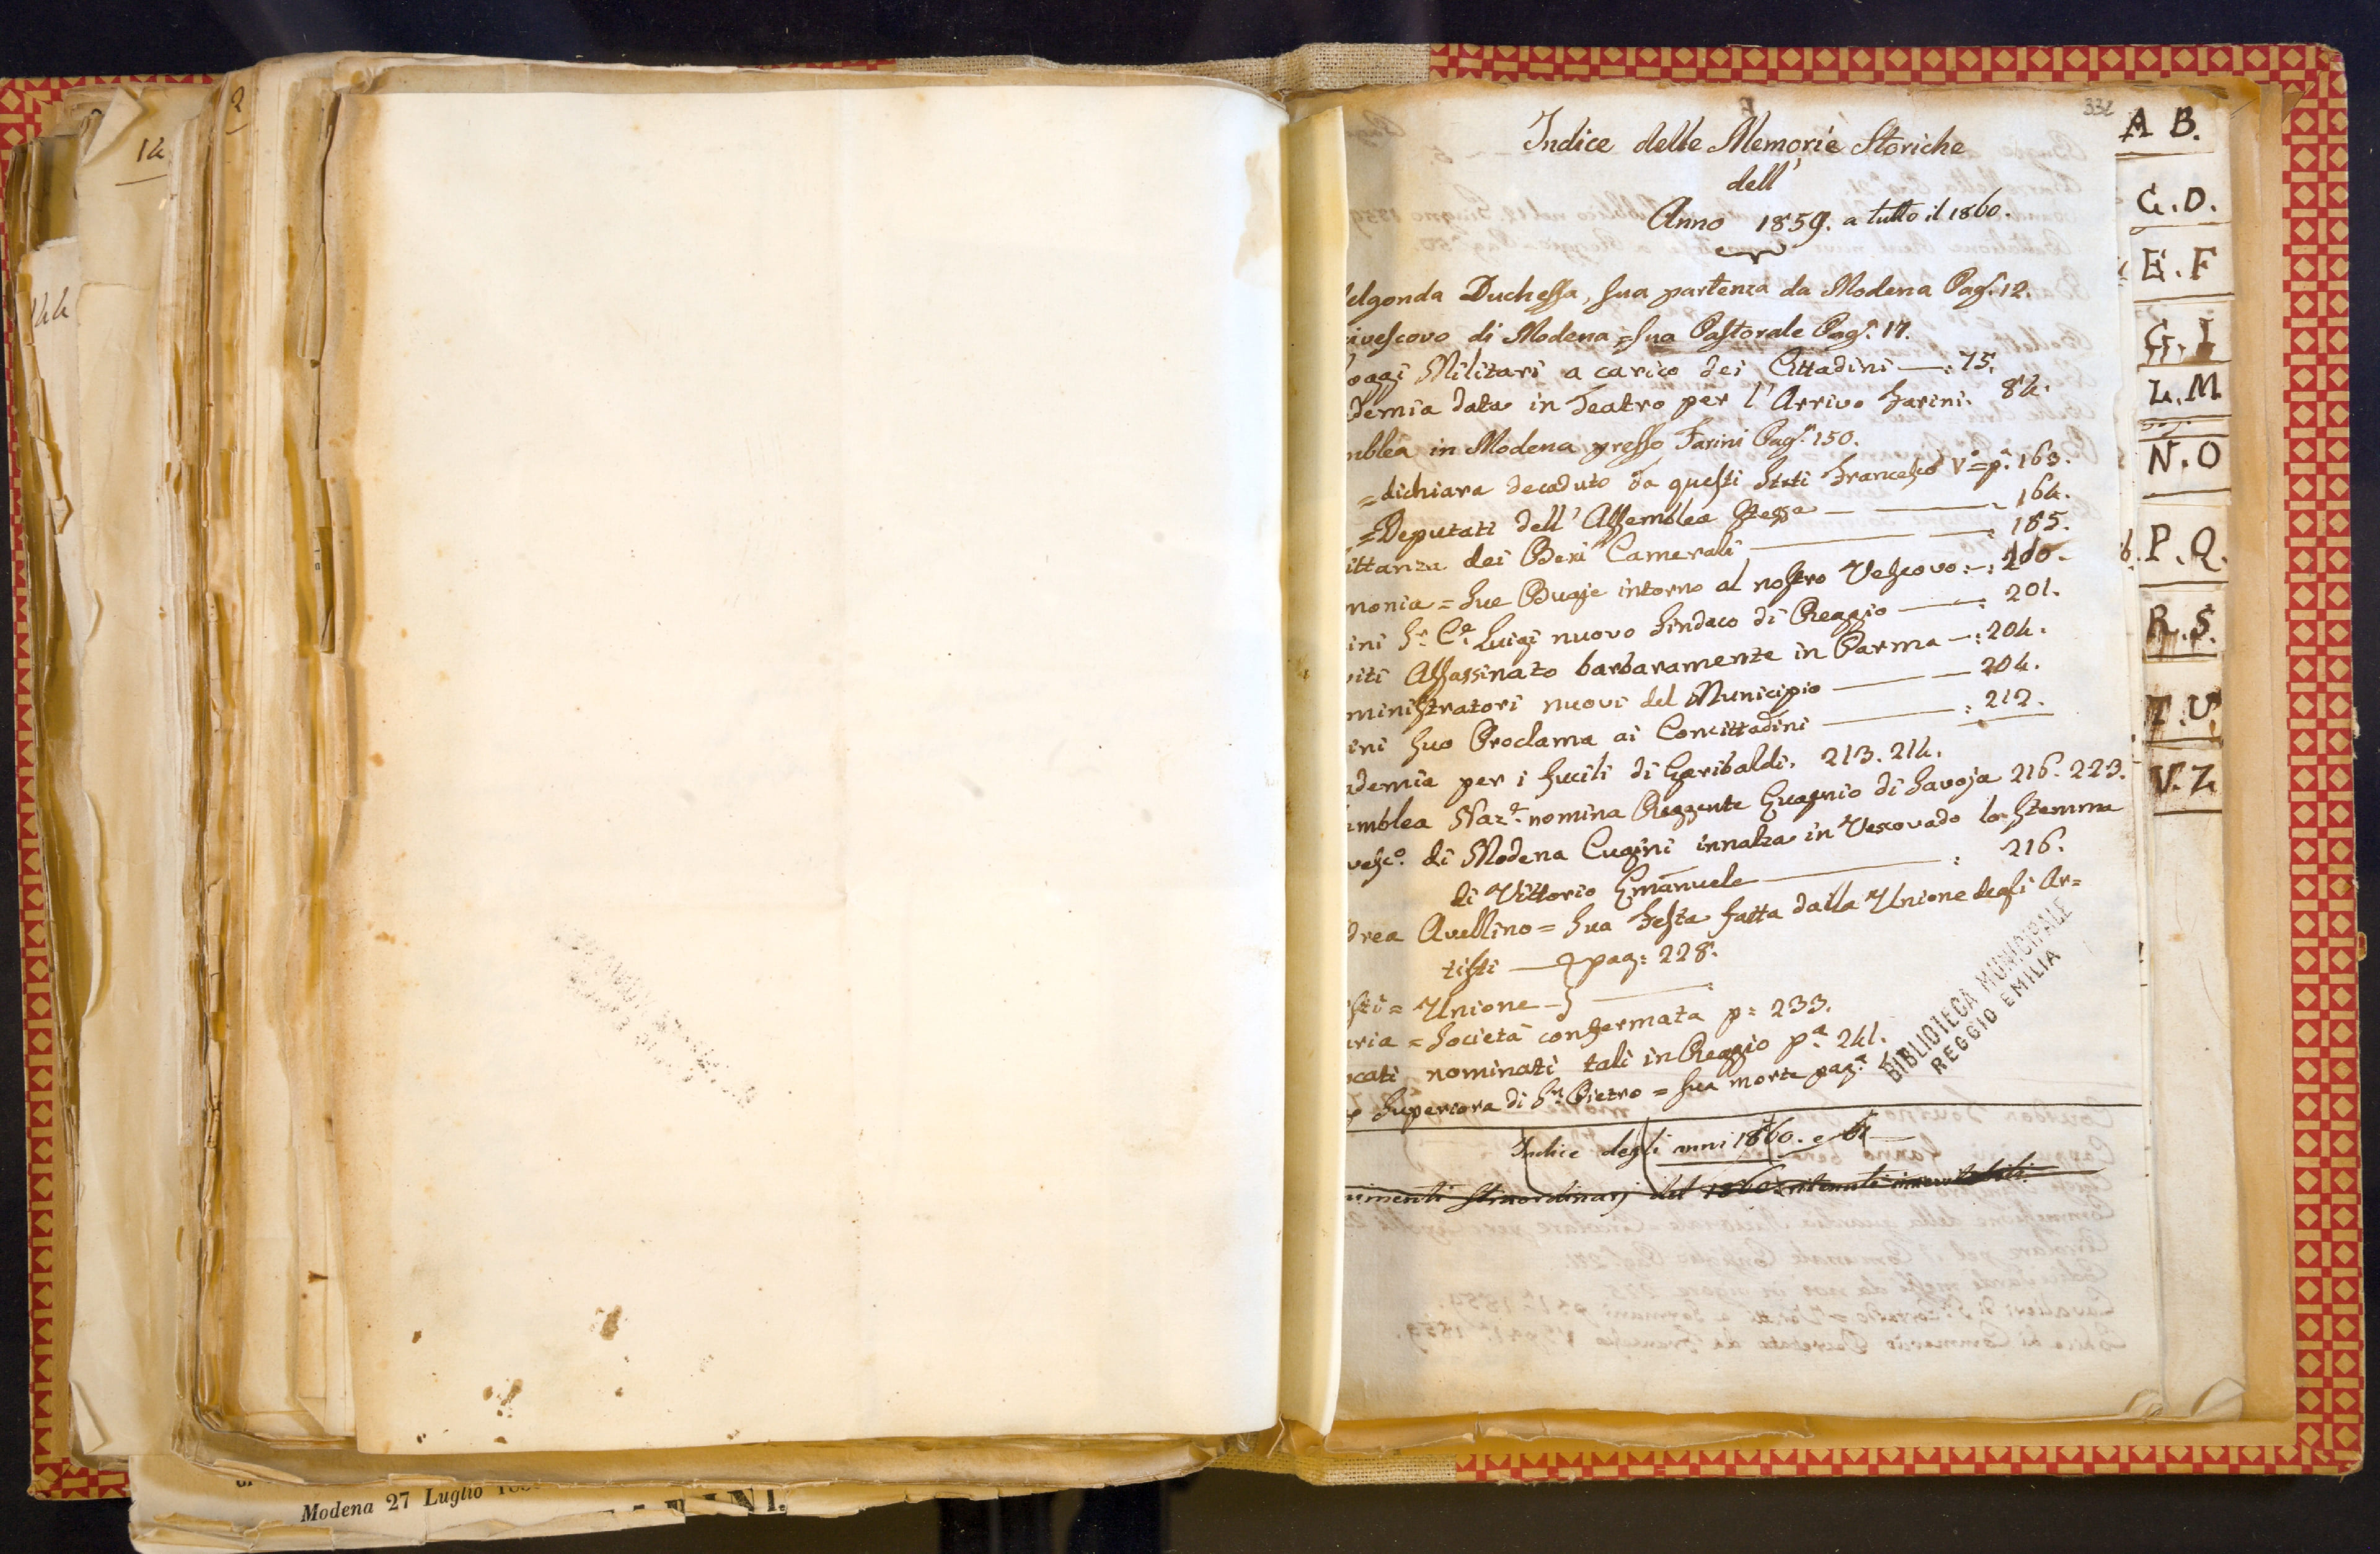 2
12
144
Modena 27 Luglio
332
Indice delle Memorie Storiche
dell'
Anno 1859. a tutto il 1860.
elgonda Duchessa, sua partenza da Modena Pag.ª 12.
ivescovo di Modena = sua Pastorale Pag.ª 17.
oggi Militari a carico dei Cittadini —: 75.
demia data in Teatro per l'Arrivo Farini. 84.
mblea in Modena presso Farini Pag.ª 150.
= dichiara decaduto da questi Stati Francesco V.º = p.ª 163.
= Deputati dell'Assemblea stessa — 164.
ittanza dei Beni Camerali —: 185.
monia = sue Bugie intorno al nostro Vescovo: —:
ini S.r C.e Luigi nuovo Sindaco di Reggio —: 201.
viti Assassinato barbaramente in Parma —: 204.
ministratori nuovi del Municipio — 204.
ini suo Proclama ai Concittadini —: 212.
ademia per i fucili di Garibaldi. 213. 214.
emblea Naz.e nomina Reggente Eugenio di Savoja 216. 223.
vesc.º di Modena Cugini innalza in Vescovado lo Stemma
di Vittorio Emanuele —: 216.
drea Avellino = sua Festa fatta dalla Unione degli Ar=
tisti — } pag: 228.
sti = Unione — }
aria = Società confermata p: 233.
ocati nominati tali in Reggio p.ª 241.
Superiora di S.n Pietro = sua morte pag.ª
Indice degli anni 1860. e 61
imenti straordinarj del 1860
BIBLIOTECA MUNICIPALE
REGGIO EMILIA
A B.
C. D.
E. F
G. I
L. M
N. O
P. Q.
R. S.
T. U.
V. Z.